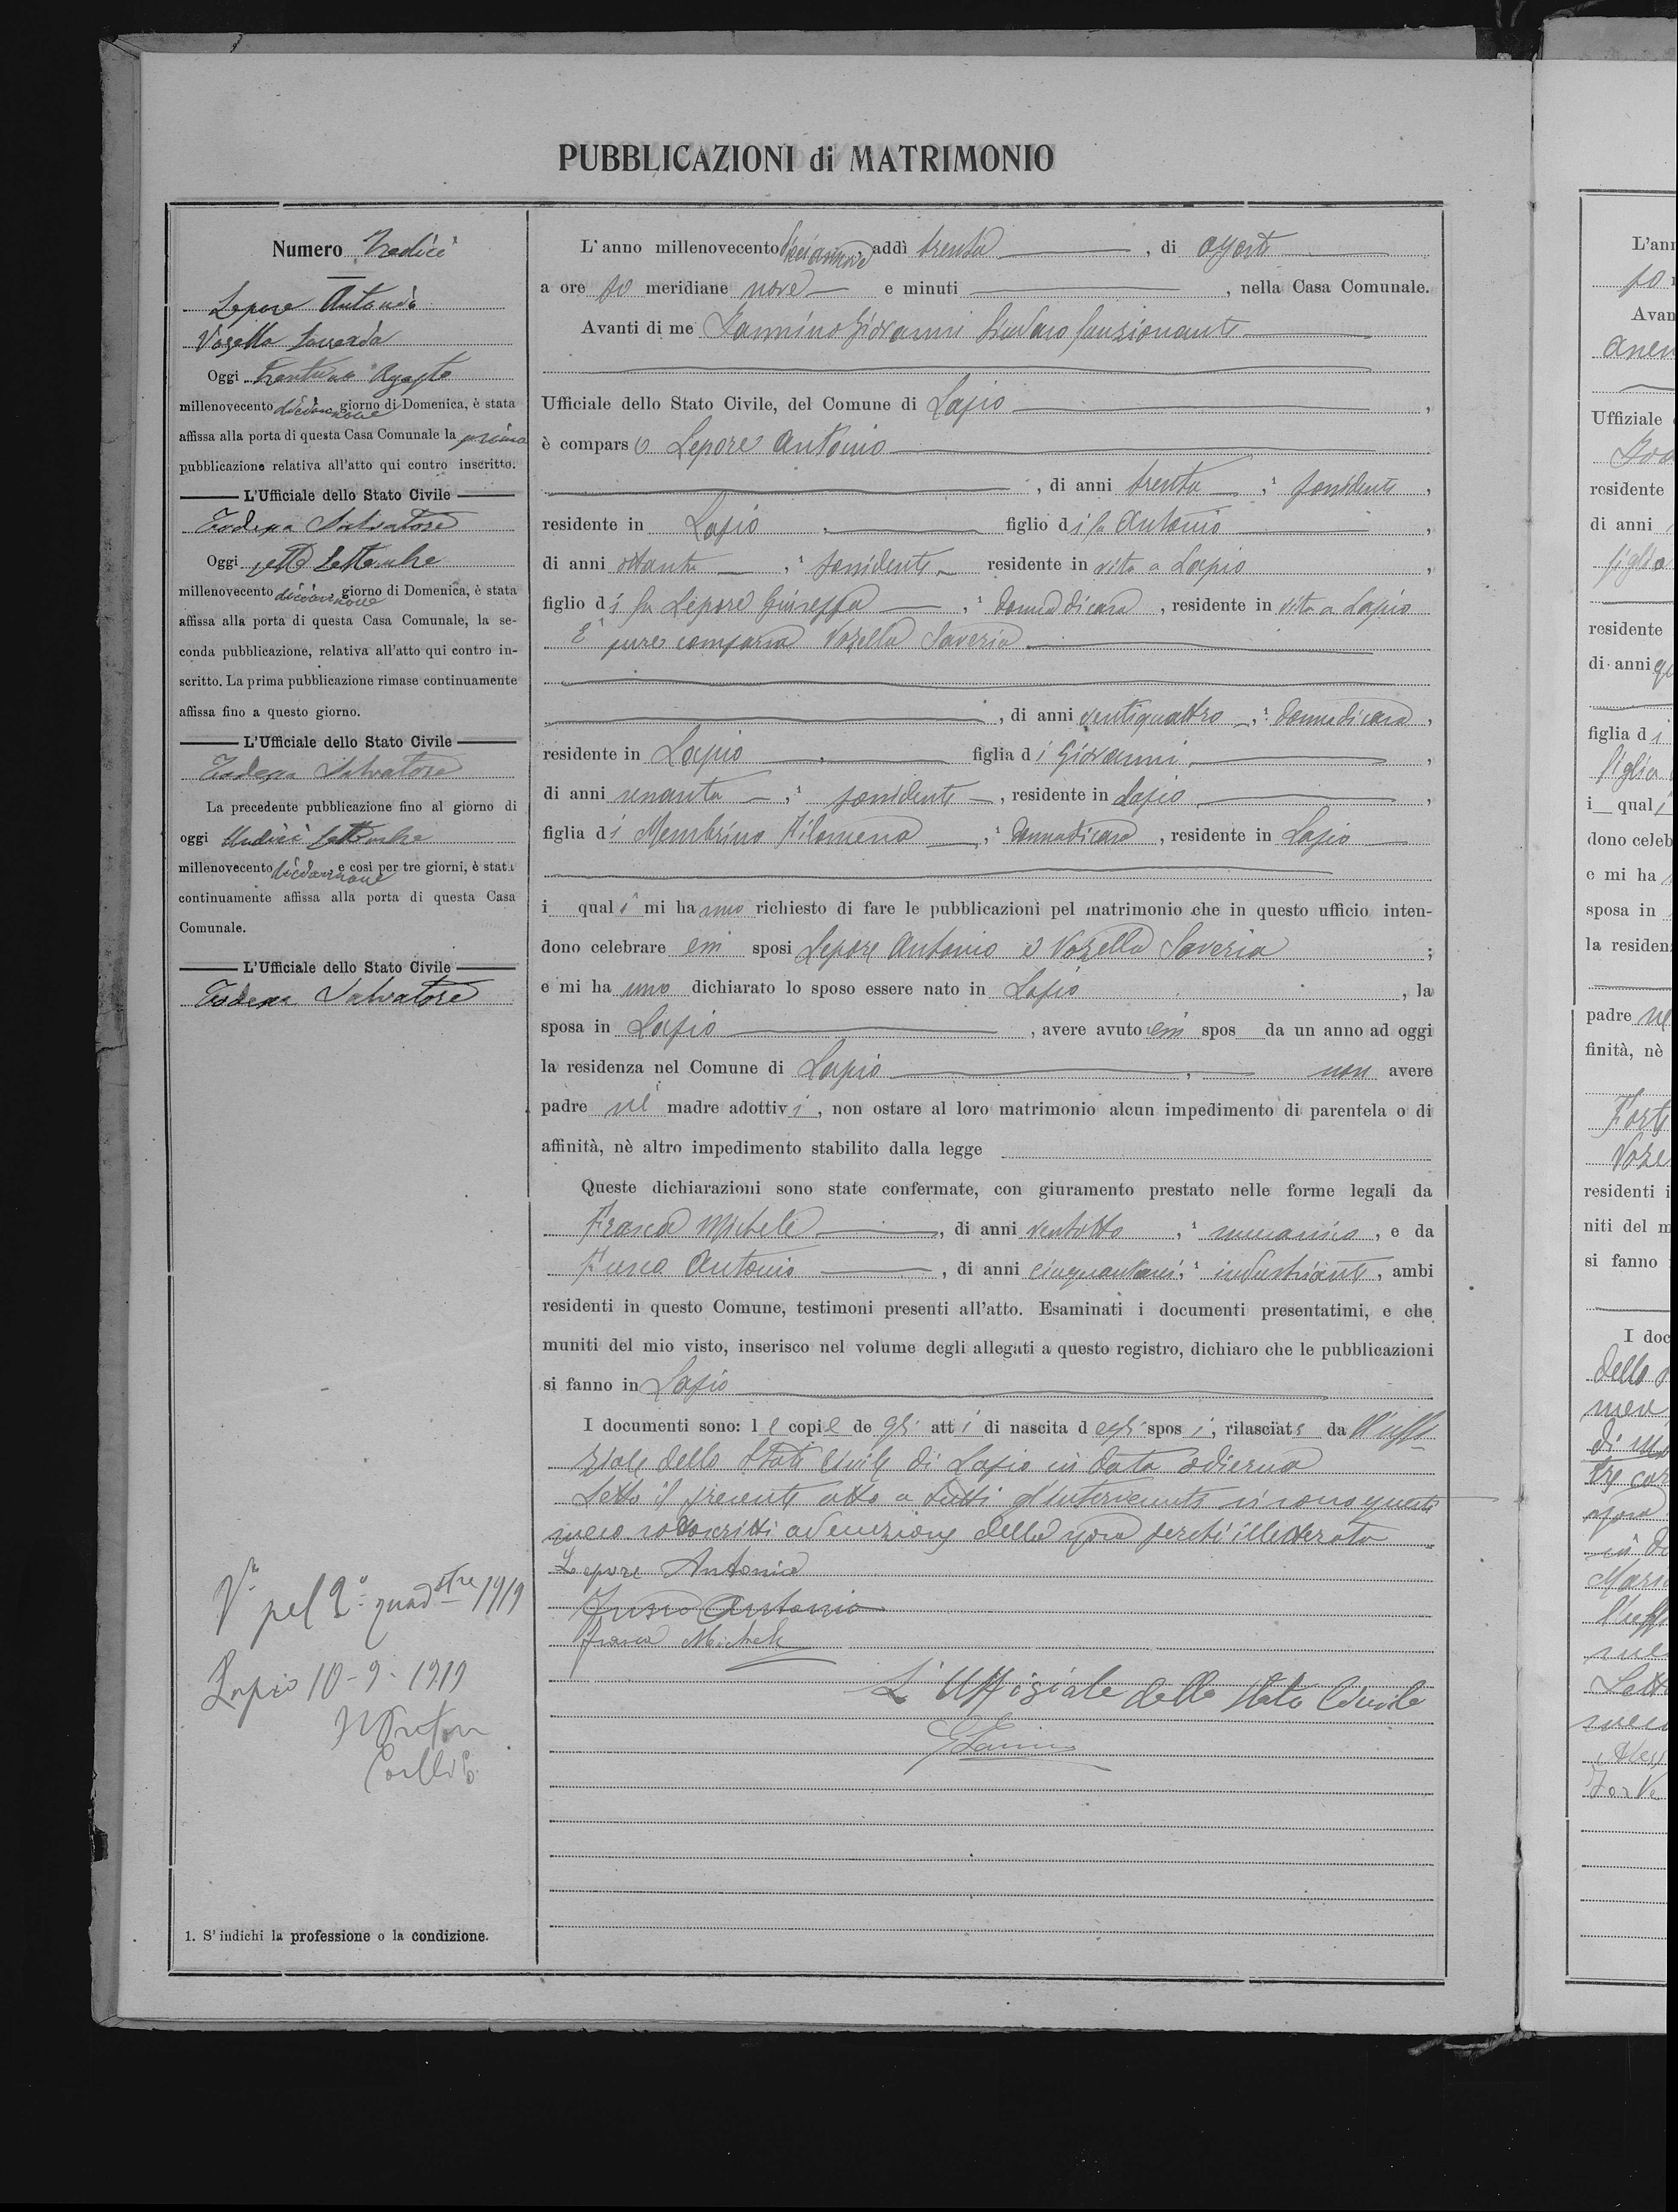 PUBBLICAZIONI di MATRIMONIO
Numero Tredici
Lepore Antonio
Vozella Saveria
Oggi Trentuno Agosto
millenovecento diciannove giorno di Domenica, è stata
affissa alla porta di questa Casa Comunale la prima
pubblicazione relativa all'atto qui contro inscritto.
L'Ufficiale dello Stato Civile
Salvatore
Oggi sette Settembre
millenovecento diciannove giorno di Domenica, è stata
affissa alla porta di questa Casa Comunale, la se-
conda pubblicazione, relativa all'atto qui contro in-
scritto. La prima pubblicazione rimase continuamente
affissa fino a questo giorno.
L'Ufficiale dello Stato Civile
Salvatore
La precedente pubblicazione fino al giorno di
oggi Undici Settembre
millenovecento diciannove e così per tre giorni, è stata
continuamente affissa alla porta di questa Casa
Comunale.
L'Ufficiale dello Stato Civile
Salvatore
V° pel 2° quadstre 1919
Lapio 10-9-1919
1. S'indichi la professione o la condizione.
L'anno millenovecento diciannove addì trenta, di agosto
a ore po meridiane nove e minuti , nella Casa Comunale.
Avanti di me Iannino Giovanni Sindaco funzionante
Ufficiale dello Stato Civile, del Comune di Lapio ,
è comparso Lepore Antonio
, di anni trenta ,¹ possidente ,
residente in Lapio figlio di fu Antonio ,
di anni ottanta ,¹ possidente residente in vita a Lapio ,
figlio di fu Lepore Giuseppa ,¹ donna di casa , residente in vita a Lapio
È pure comparsa Vozella Saveria
, di anni ventiquattro ,¹ donna di casa ,
residente in Lapio figlia di Giovanni ,
di anni ,¹ possidente , residente in Lapio ,
figlia di Membrino Filomena ,¹ donna di casa , residente in Lapio
i quali mi hanno richiesto di fare le pubblicazioni pel matrimonio che in questo ufficio inten-
dono celebrare essi sposi Lepore Antonio e Vozella Saveria ;
e mi hanno dichiarato lo sposo essere nato in Lapio , la
sposa in Lapio , avere avuto essi spos da un anno ad oggi
la residenza nel Comune di Lapio , non avere
padre nè madre adottivi , non ostare al loro matrimonio alcun impedimento di parentela o di
affinità, nè altro impedimento stabilito dalla legge
Queste dichiarazioni sono state confermate, con giuramento prestato nelle forme legali da
Frasca Michele , di anni ventotto ,¹ , e da
Fusco Antonio , di anni ,¹ industriante , ambi
residenti in questo Comune, testimoni presenti all'atto. Esaminati i documenti presentatimi, e che
muniti del mio visto, inserisco nel volume degli allegati a questo registro, dichiaro che le pubblicazioni
si fanno in Lapio
I documenti sono: le copie degli atti di nascita degli sposi, rilasciate dall'uffi-
ziale dello Stato Civile di Lapio in data odierna
Letto il presente atto a tutti gl'intervenuti si sono questi
meco sottoscritti ad eccezione della sposa perché illetterata
Lepore Antonio
Fusco Antonio
Frasca Michele
L'Uffiziale dello Stato Civile
GIannino
L'an
po
Avan
Uffiziale
residente
di anni
figlia
residente
di anni
figlia di
figlia
i quali
dono celeb
e mi ha
sposa in
la residen
padre
finità, nè
Forte
Voze
residenti i
niti del m
si fanno
I doc
dello